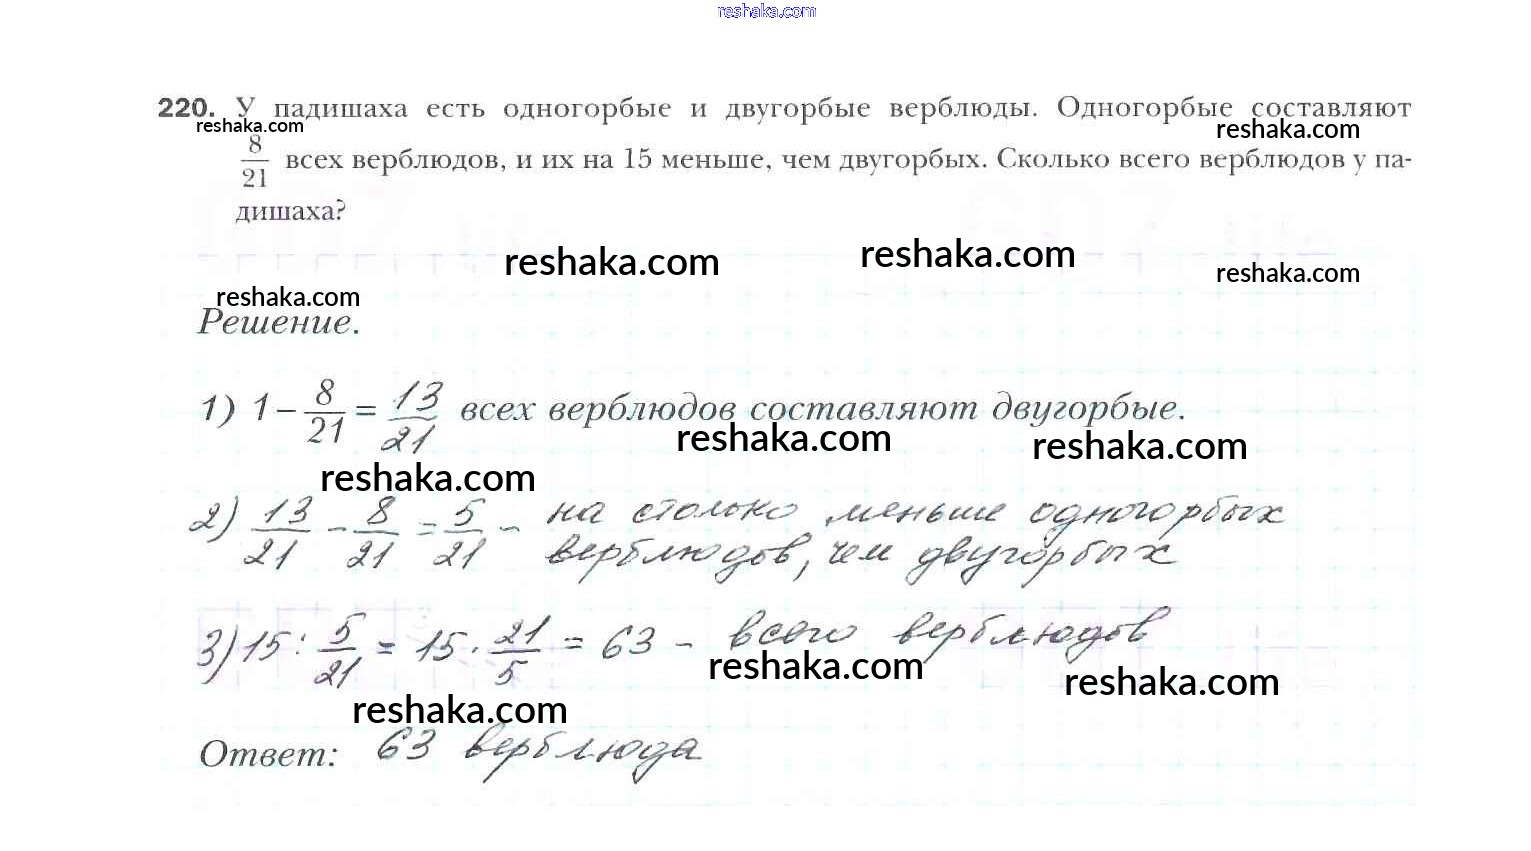 reshaka.com
220. У падишаха есть одногорбые и двугорбые верблюды. Одногорбые составляют
reshaka.com reshaka.com
8/21 всех верблюдов, и их на 15 меньше, чем двугорбых. Сколько всего верблюдов у па-
дишаха?
reshaka.com reshaka.com
reshaka.com
reshaka.com
Решение.
1) 1 – 8/21 = 13/21 всех верблюдов составляют двугорбые.
reshaka.com reshaka.com
reshaka.com
2) 13/21 – 8/21 = 5/21 – на столько меньше одногорбых
верблюдов, чем двугорбых
3) 15 : 5/21 = 15 · 21/5 = 63 – всего верблюдов
reshaka.com reshaka.com
reshaka.com
Ответ: 63 верблюда